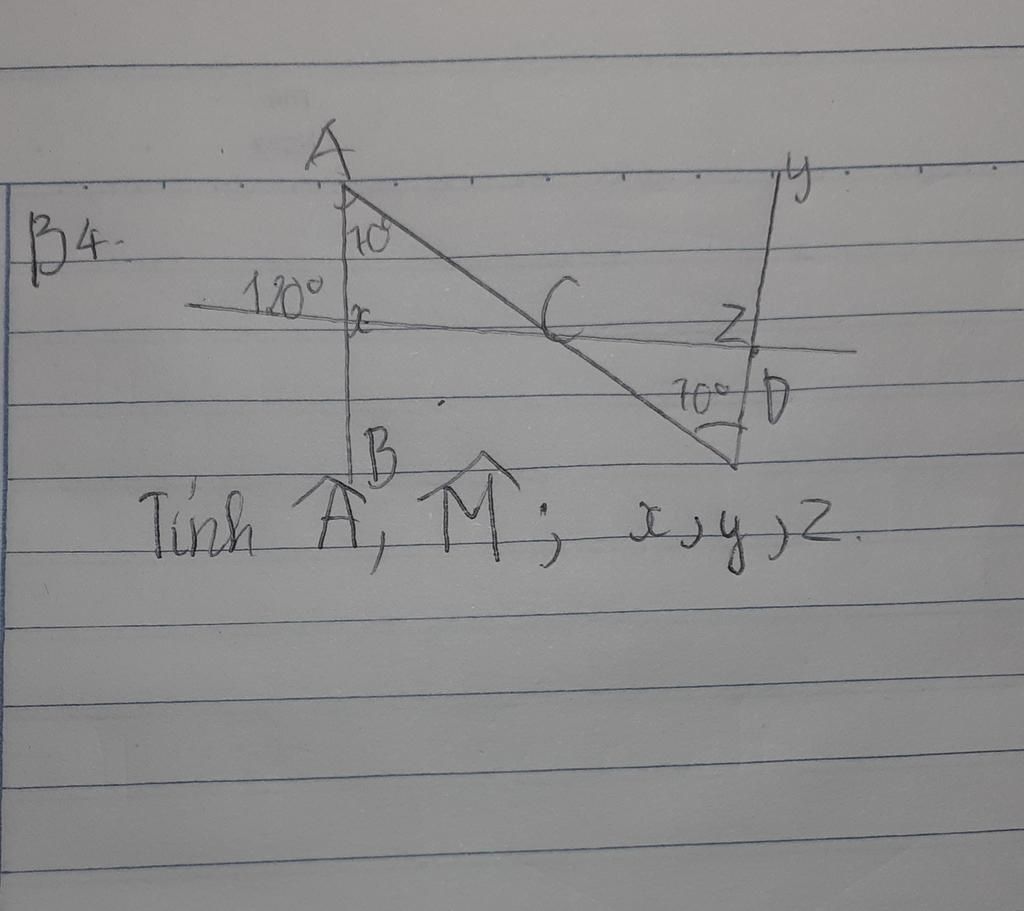 A
y
B4.
70°
120°
x
C
Z
70°
D
B
Tính Â, M̂; x, y, z.